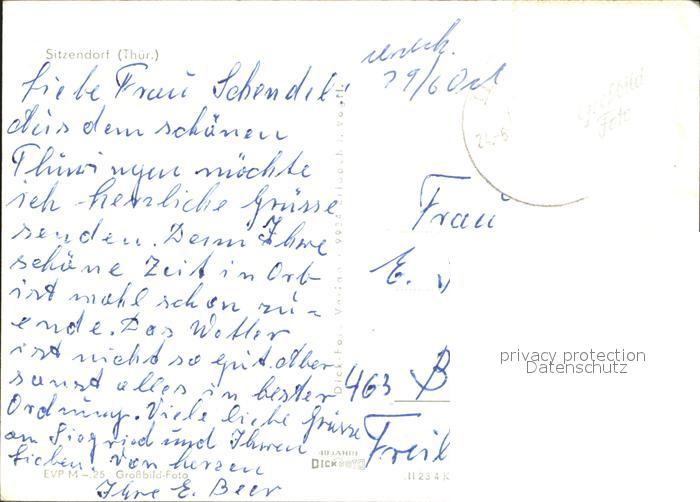 Sitzendorf (Thür.)
Liebe Frau Schendel!
Aus dem schönen
Thüringen möchte
ich herzliche Grüsse
senden. Denn Ihre
schöne Zeit in Orb
ist wohl schon zu-
ende. Das Wetter
ist nicht so gut. Aber
sonst alles in bester
Ordnung. Viele liebe Grüsse
an Siegried und Ihren
Lieben. Von herzen
Ihre E. Beer
EVP M -.25 Großbild-Foto
29/6
24.-6
Großbild
Foto
Frau
E.
463 B
Freib
40 JAHRE
DICK FOTO
II 23 4 K
privacy protection
Datenschutz